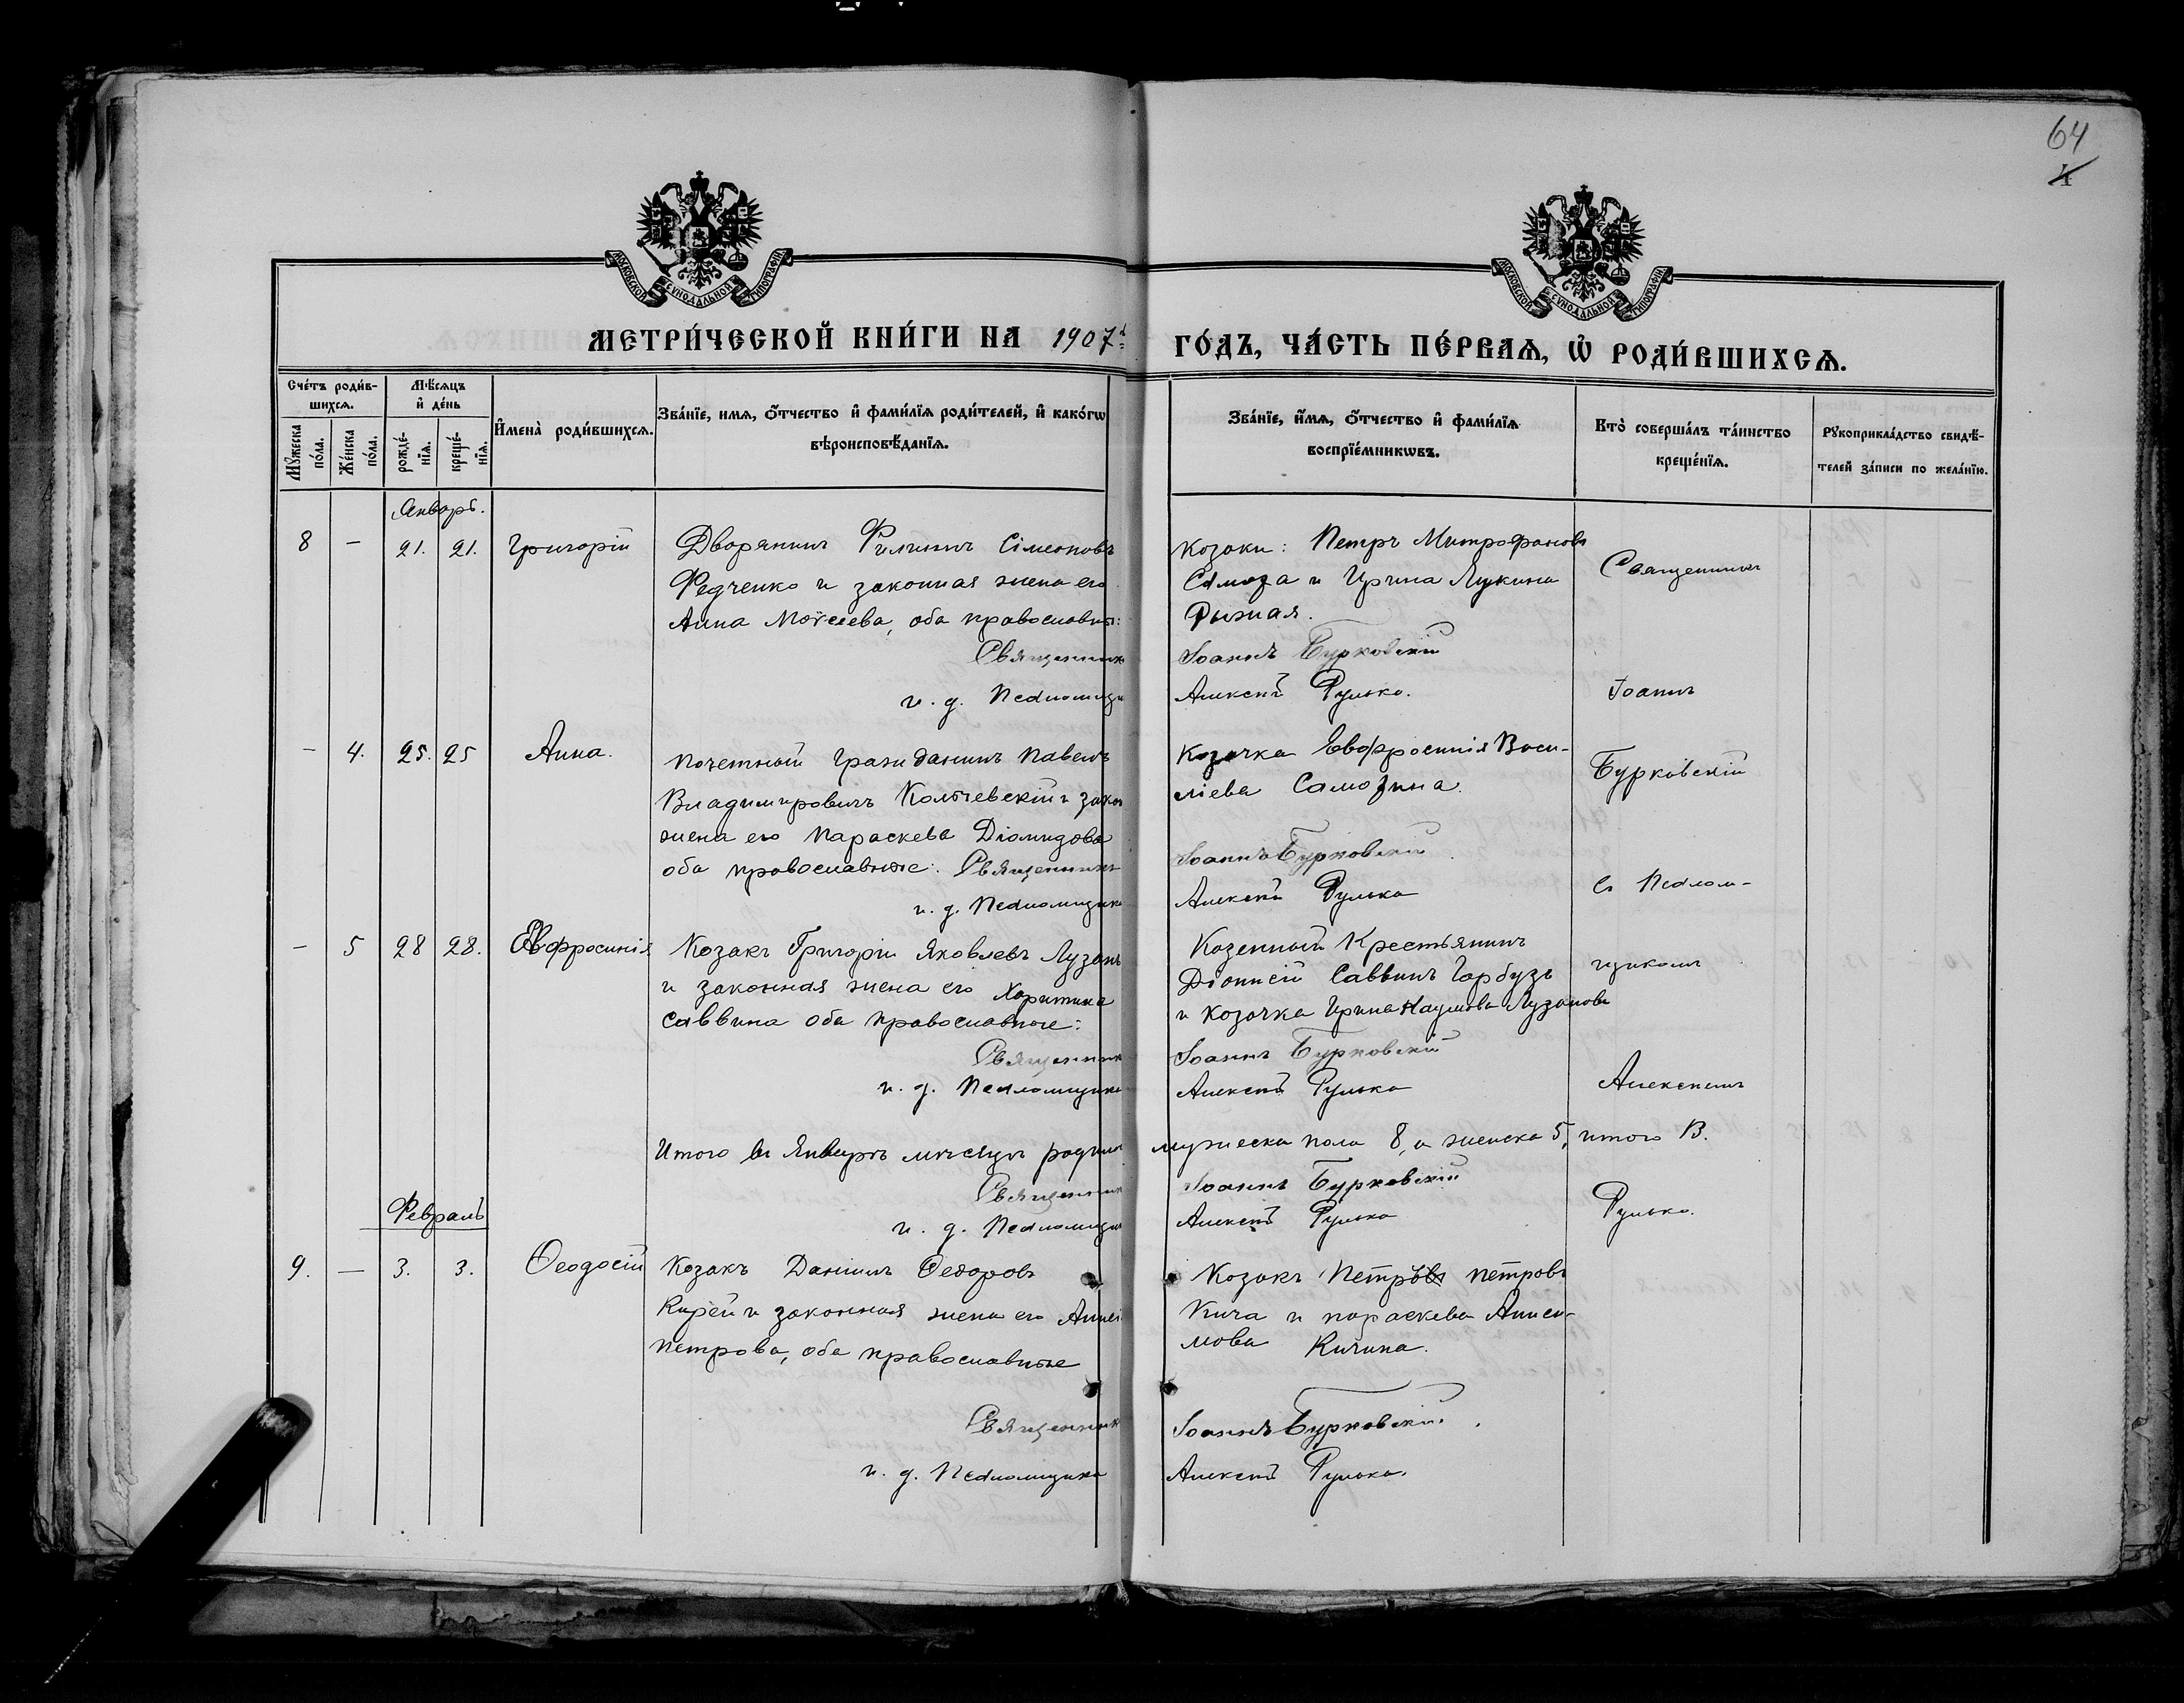 64
4
МОСКОВСКОЙ СѴНОДАЛЬНОЙ ТИПОГРАФІИ
МОСКОВСКОЙ СѴНОДАЛЬНОЙ ТИПОГРАФІИ
МЕТРИ́ЧЕСКОЙ КНИ́ГИ НА 1907й ГО́ДЪ, ЧА́СТЬ ПЕ́РВАѦ, Ѡ҆ РОДИ́ВШИХСѦ.
Сче́тъ роди́в-
шихсѧ.
Мꙋ́жеска по́ла.
Же́нска по́ла.
Мѣ́сѧцъ
и҆ де́нь
рожде́-
нїѧ.
креще́-
нїѧ.
И҆мена̀ роди́вшихсѧ.
Зва́нїе, имѧ, ѻ҆́тчество и҆ фами́лїѧ роди́телей, и҆ како́гѡ
вѣроисповѣ́данїѧ.
Зва́нїе, и҆́мѧ, ѻ҆́тчество и҆ фами́лїѧ
воспрїе́мникѡвъ.
Кто̀ соверша́лъ та́инство
креще́нїѧ.
Рꙋкоприкла́дство свидѣ́-
телей за́писи по жела́нїю.
Январь.
8 – 21. 21. Григорій
Дворянинъ Филиппъ Сімеоновъ
Федченко и законная жена его
Анна Моѵсеева, оба православны:
Священник
и. д. Псаломщи
Козаки: Петръ Митрофановъ
Самоза и Ирина Лукина
Рыжая.
Іоаннъ Бурковскій
Алексѣй Рулько.
Священникъ
Іоаннъ
– 4. 25. 25 Анна.
Почетный гражданинъ Павелъ
Владимировичъ Колчевскій и закон
жена его Параскева Діомидова
оба православные: Священникъ
и. д. Псаломщик
Козачка Евфросинія Васи-
ліева Самозина.
Іоаннъ Бурковскій
Алексѣй Рулько
Бурковскій
съ Псалом-
– 5 28 28. Евфросинія
Козакъ Григорій Яковлевъ Лузанъ
и законная жена его Харитина
Саввина оба православные:
Священник
и. д. Псаломщик
Козенный Крестьянинъ
Діонисій Саввинъ Гарбузъ
и козачка Ирина Наумова Лузанова
Іоаннъ Бурковскій
Алексѣй Рулько
щикомъ
Алексѣемъ
Итого въ Январѣ мѣсяцѣ родил мужеска пола 8, а женска 5, итого 13.
Священник
и. д. Псаломщи
Іоаннъ Бурковскій
Алексѣй Рулько
Рулько.
Февраль
9. – 3. 3. Ѳеодосій
Козакъ Даніилъ Ѳедоровъ
Кирей и законная жена его
Петрова, оба православные
Священник
и. д. Псаломщикъ
Козакъ Петръ Петровъ
Кича и Параскева Аниси-
мова Кичина.
Іоаннъ Бурковскій.
Алексѣй Рулько.